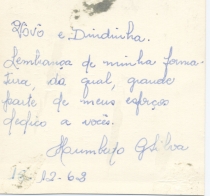 Vovô e Dindinha.
Lembrança de minha forma-
tura, da qual, grande
parte de meus esforço
dedico a vocês.
Humberto G Silva
12-62